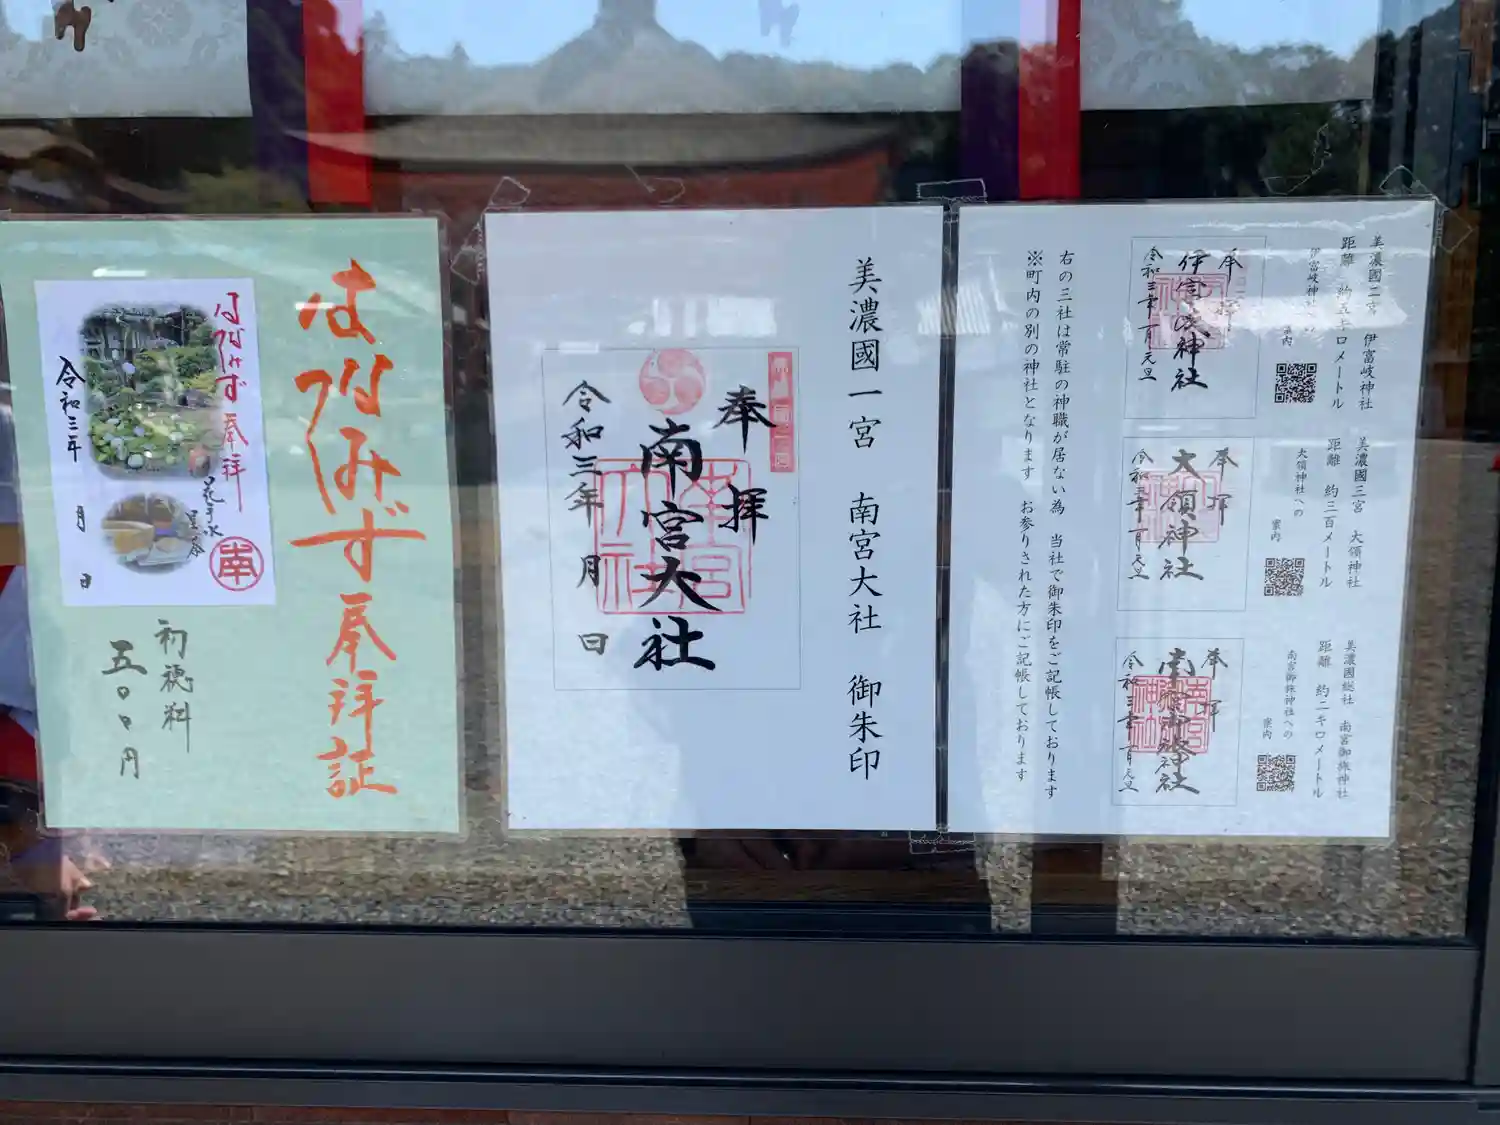 美濃國二宮 伊富岐神社
距離 約五キロメートル
伊富岐神社への
案内
奉拝
伊富岐神社
令和三年一月元旦
美濃國三宮 大領神社
距離 約三百メートル
大領神社への
案内
奉拝
大領神社
令和三年一月元旦
美濃國総社 南宮御旅神社
距離 約二キロメートル
南宮御旅神社への
案内
奉拝
南宮御旅神社
令和三年一月元旦
右の三社は常駐の神職が居ない為 当社で御朱印をご記帳しております
※町内の別の神社となります お参りされた方にご記帳しております
美濃國一宮 南宮大社 御朱印
奉拝
南宮大社
令和三年 月 日
はなみず奉拝証
はなみず奉拝
花手水
令和三年 月 日
南
初穂料
五〇〇円